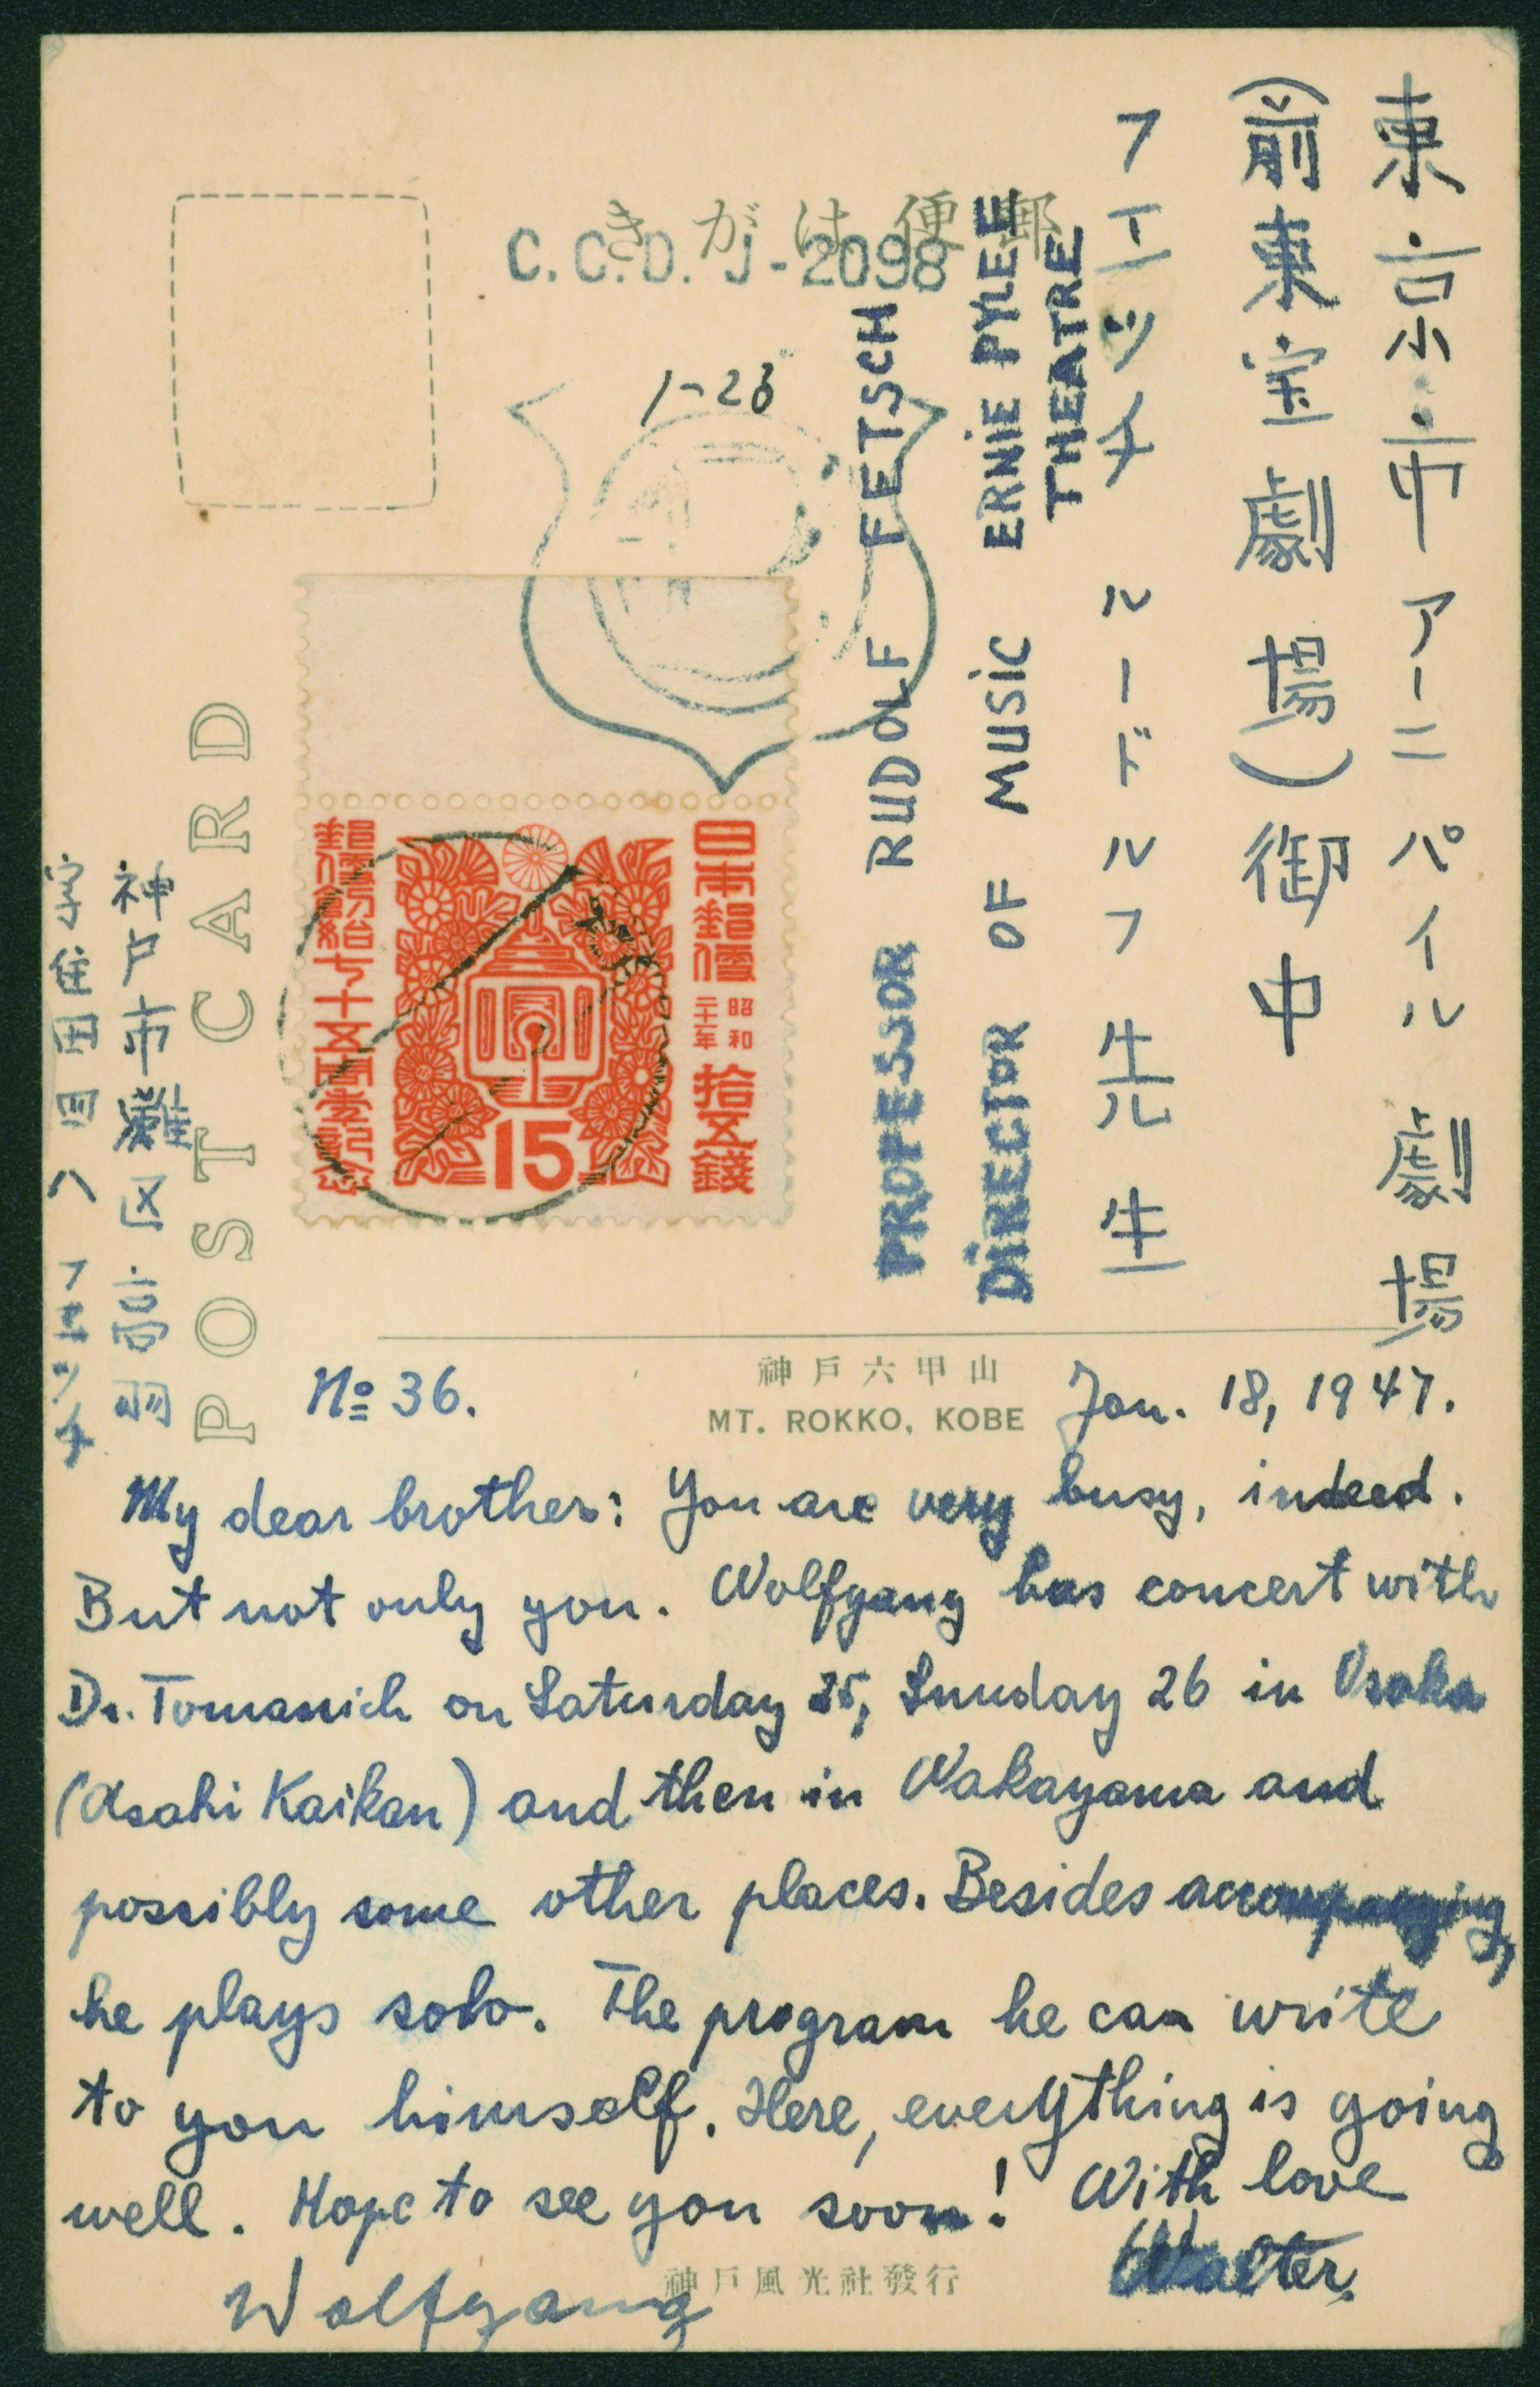 東京市アーニパイル劇場
(前東宝劇場)御中
フエッチ ルードルフ先生
ERNIE PYLE
THEATRE
DIRECTOR OF MUSIC
PROFESSOR RUDOLF FETSCH
郵便はがき
C.C.D. J-2098
1-23
日本郵便
昭和
二十一年
拾五錢
15
POST CARD
神戸市灘区高羽
フエッチ
神戸六甲山
MT. ROKKO, KOBE
No 36.
Jan. 18, 1947.
My dear brother: You are very busy, indeed.
But not only you. Wolfgang has concert with
Dr. Tomanich on Saturday 25, Sunday 26 in Osaka
(Asahi Kaikan) and then in Wakayama and
possibly some other places. Besides accompanying,
he plays solo. The program he can write
to you himself. Here, everything is going
well. Hope to see you soon! With love
Walter.
Wolfgang
神戸風光社發行